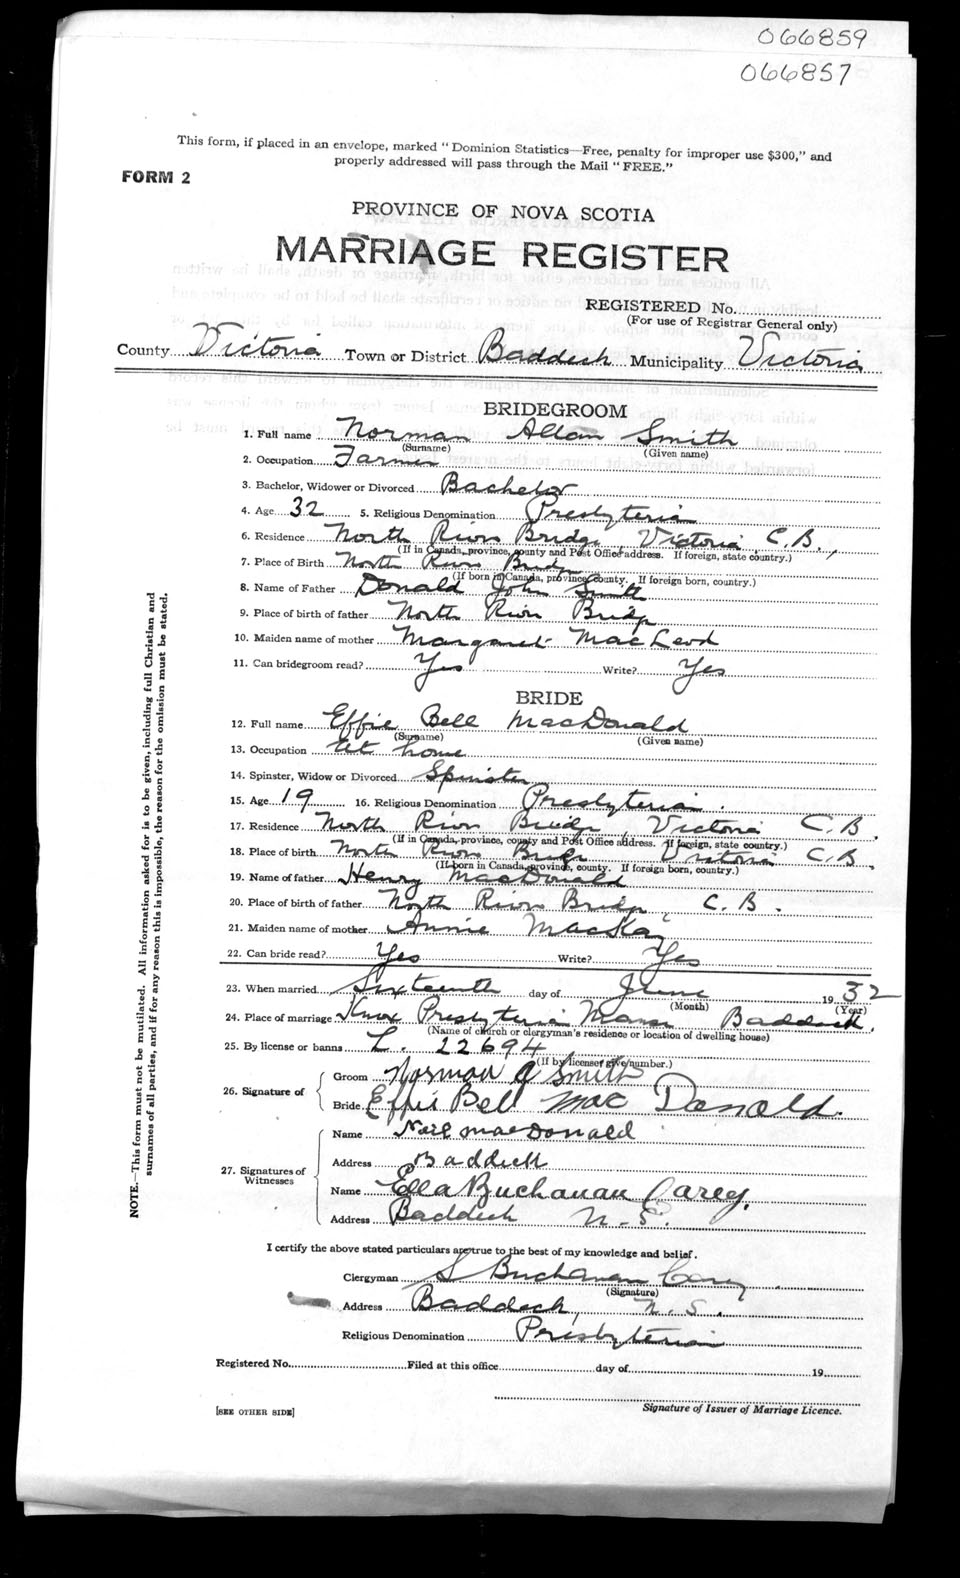 066859
066857
This form, if placed in an envelope, marked "Dominion Statistics—Free, penalty for improper use $300," and
properly addressed will pass through the Mail "FREE."
FORM 2
PROVINCE OF NOVA SCOTIA
MARRIAGE REGISTER
REGISTERED No.
(For use of Registrar General only)
County Victoria Town or District Baddeck Municipality Victoria
BRIDEGROOM
1. Full name Norman Allan Smith
(Surname) (Given name)
2. Occupation Farmer
3. Bachelor, Widower or Divorced Bachelor
4. Age 32 5. Religious Denomination Presbyteria
6. Residence North River Bridge, Victoria, C.B.,
(If in Canada, province, county and Post Office address. If foreign, state country.)
7. Place of Birth North River Bridge
(If born in Canada, province, county. If foreign born, country.)
8. Name of Father Donald John Smith
9. Place of birth of father North River Bridge
10. Maiden name of mother Margaret MacLeod
11. Can bridegroom read? Yes Write? Yes
BRIDE
12. Full name Effie Bell MacDonald
(Surname) (Given name)
13. Occupation At home
14. Spinster, Widow or Divorced Spinster
15. Age 19 16. Religious Denomination Presbyteria.
17. Residence North River Bridge, Victoria C.B.
(If in Canada, province, county and Post Office address. If foreign, state country.)
18. Place of birth North River Bridge Victoria C.B.
(If born in Canada, province, county. If foreign born, country.)
19. Name of father Henry MacDonald
20. Place of birth of father North River Bridge, C.B.
21. Maiden name of mother Annie MacKay
22. Can bride read? Yes Write? Yes
23. When married Sixteenth day of June 1932
(Month) (Year)
24. Place of marriage Knox Presbyteria Manse Baddeck.
(Name of church or clergyman's residence or location of dwelling house)
25. By license or banns L. 22694
(If by license give number.)
26. Signature of
Groom Norman A Smith
Bride Effie Bell Mac Donald.
27. Signatures of Witnesses
Name Neil MacDonald
Address Baddeck
Name Ella Buchanan Carey.
Address Baddeck N.S.
I certify the above stated particulars are true to the best of my knowledge and belief.
Clergyman S Buchanan Carey.
(Signature)
Address Baddeck, N.S.
Religious Denomination Presbyterian
Registered No. Filed at this office day of 19
Signature of Issuer of Marriage Licence.
[SEE OTHER SIDE]
NOTE.—This form must not be mutilated. All information asked for is to be given, including full Christian and
surnames of all parties, and if for any reason this is impossible, the reason for the omission must be stated.